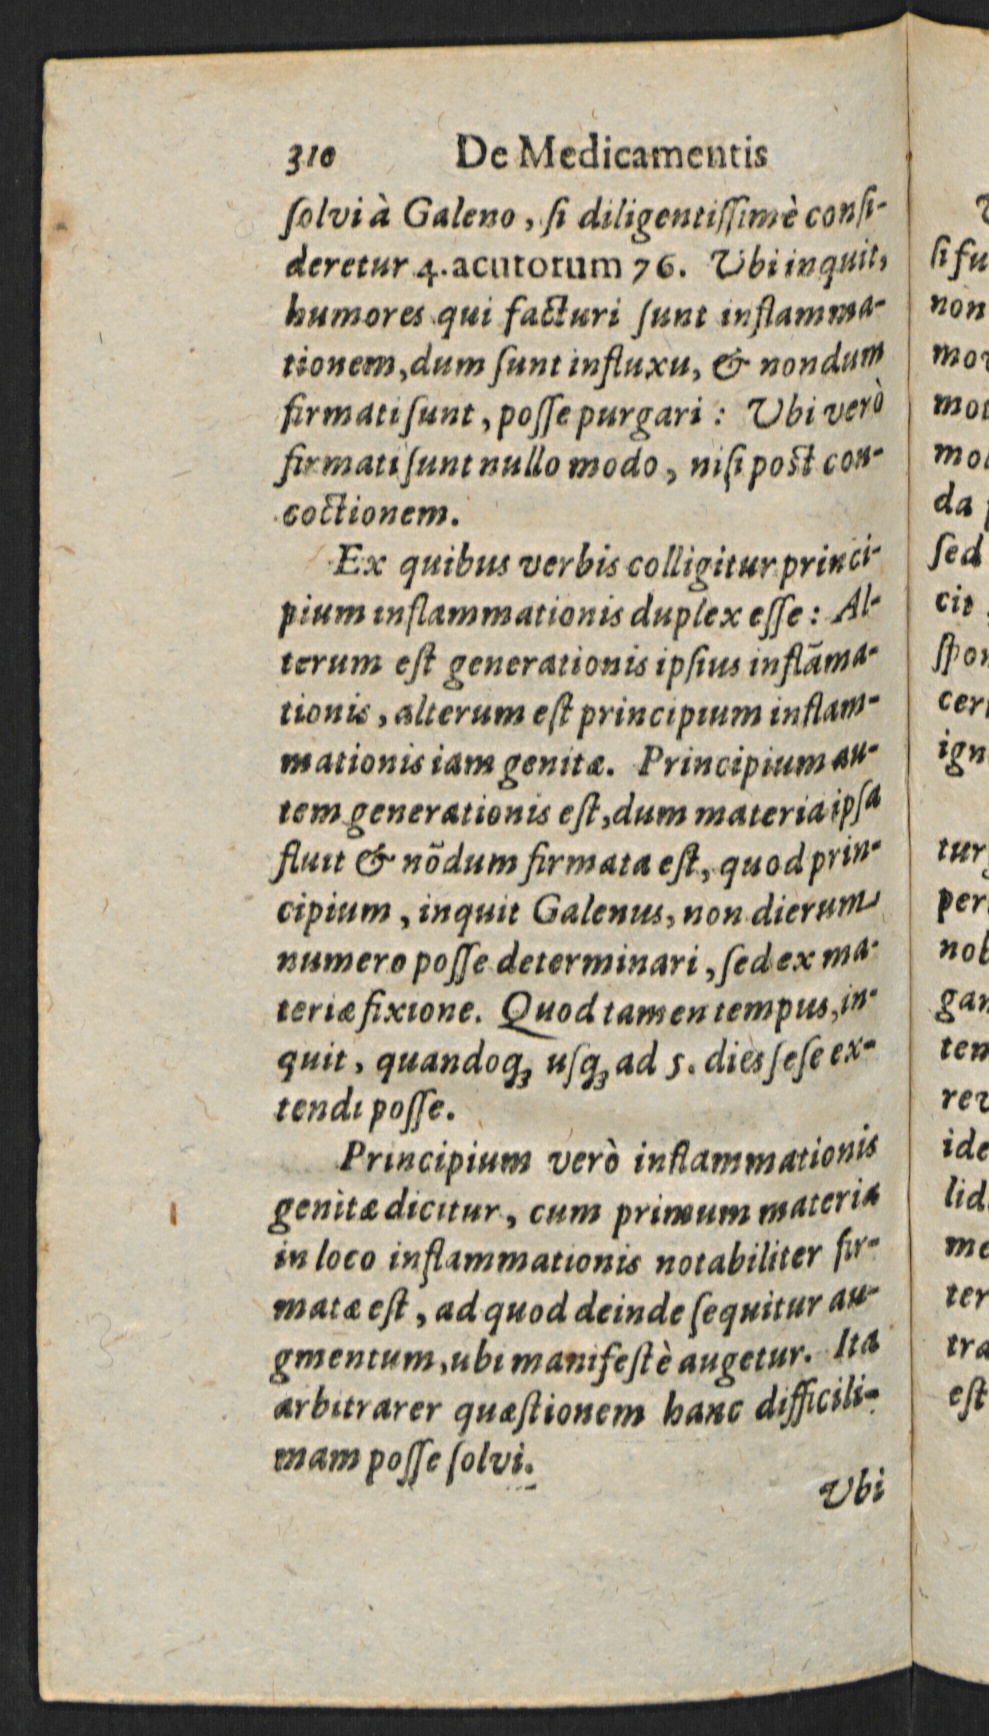 310 De Medicamentis
ſolvi à Galeno, ſi diligentiſſimè conſi-
deretur 4. acutorum 76. Ubi inquit,
humores qui facturi ſunt inflamma-
tionem, dum ſunt influxu, & nondum
firmati ſunt, poſſe purgari: Ubi verò
firmati ſunt nullo modo, niſi post con-
coctionem.
Ex quibus verbis colligitur princi-
pium inflammationis duplex eſſe: Al-
terum eſt generationis ipſius inflāma-
tionis, alterum eſt principium inflam-
mationis iam genitæ. Principium au-
tem generationis eſt, dum materia ipſa
fluit & nõdum firmata eſt, quod prin-
cipium, inquit Galenus, non dierum
numero poſſe determinari, ſed ex ma-
teriæ fixione. Quod tamen tempus, in-
quit, quandoqꝫ uſqꝫ ad 5. dies ſeſe ex-
tendi poſſe.
Principium verò inflammationis
genitæ dicitur, cum primum materia
in loco inflammationis notabiliter fir-
matæ eſt, ad quod deinde ſequitur au-
gmentum, ubi manifeſtè augetur. Ita
arbitrarer quæſtionem hanc difficili-
mam poſſe ſolvi.
Ubi
ſi fu
non
mot
da
ſed
cit
ign
per
gan
ten
ide
lid
me
ter
tra
eſt